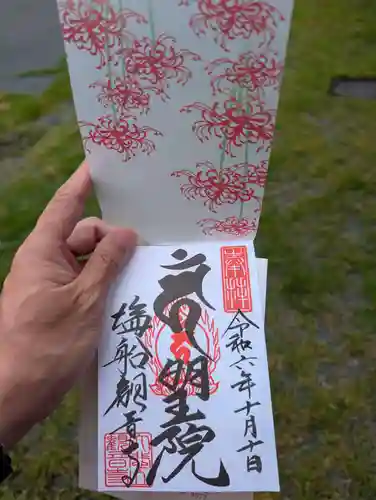 奉拝
令和六年十月十日
明王院
塩船観音寺